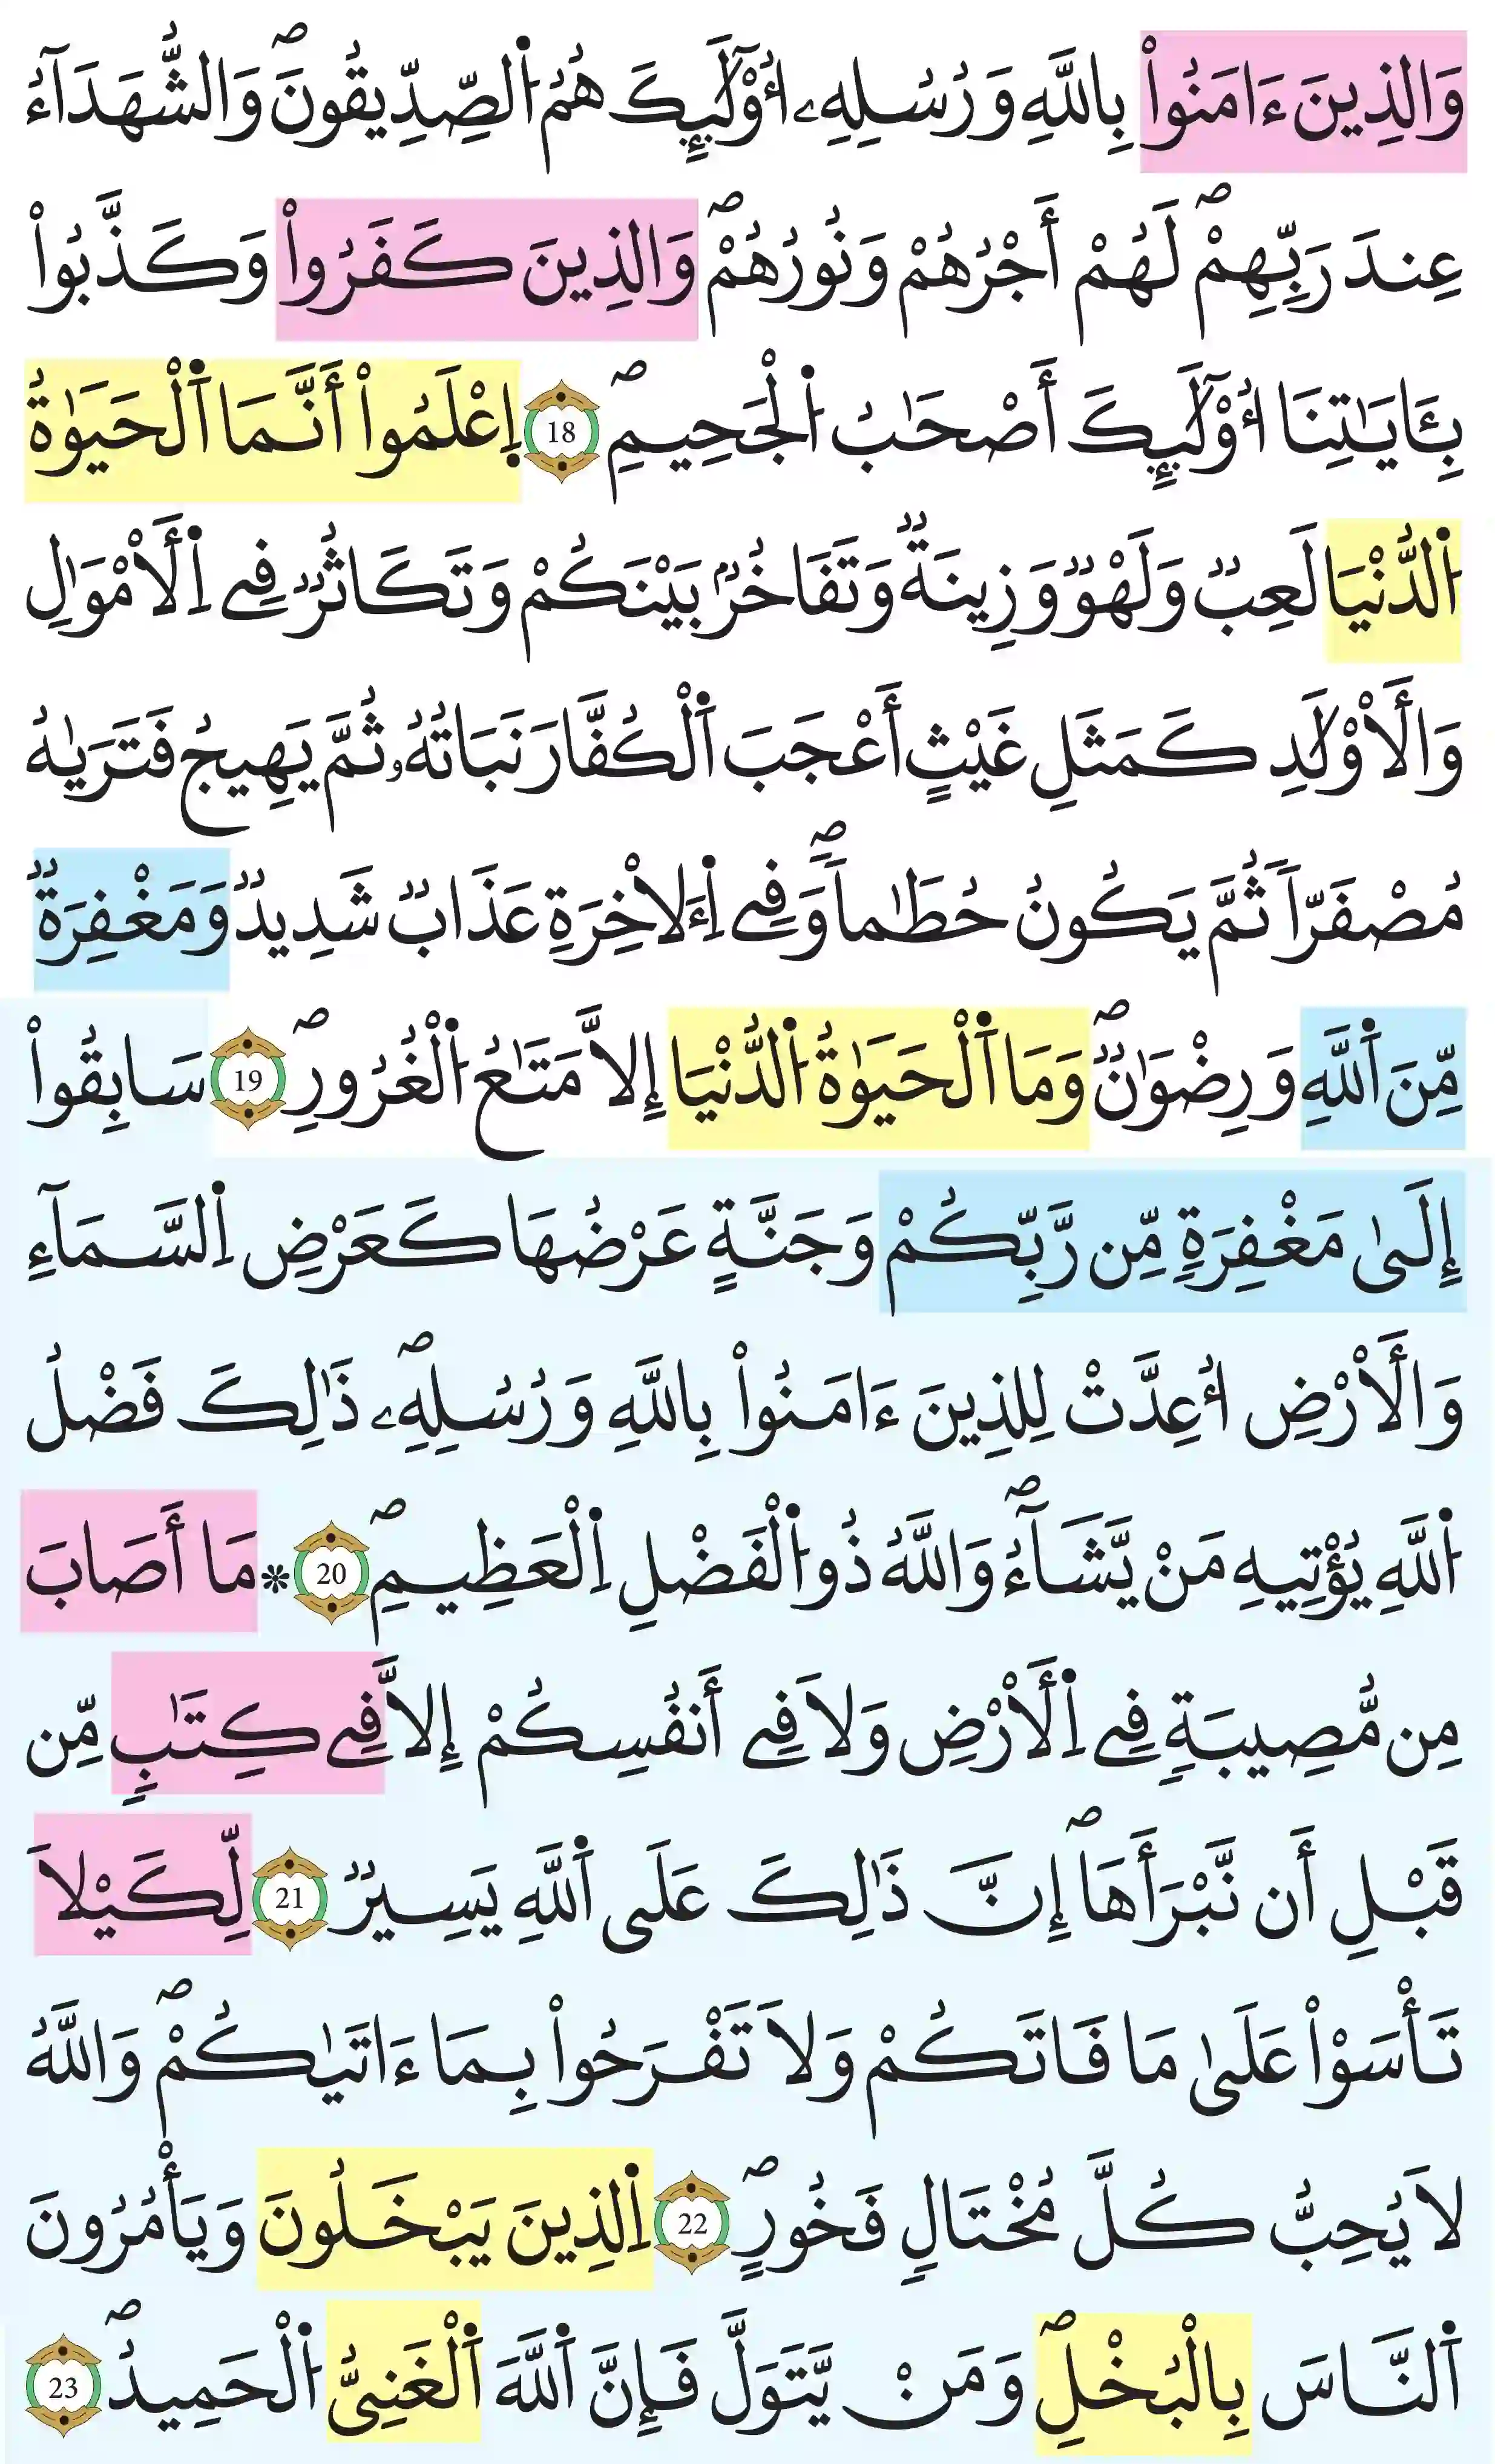 وَالذِينَ ءَامَنُواْ بِاللَّهِ وَرُسُلِهِۦ أُوْلَٰٓئِكَ هُمُ اُ۬لصِّدِّيقُونَۖ وَالشُّهَدَآءُ
عِندَ رَبِّهِمْۖ لَهُمْ أَجْرُهُمْ وَنُورُهُمْۖ وَالذِينَ كَفَرُواْ وَكَذَّبُواْ
بِـَٔايَٰتِنَا أُوْلَٰٓئِكَ أَصْحَٰبُ اُ۬لْجَحِيمِۖ 18 اِ۪عْلَمُواْ أَنَّمَا اَ۬لْحَيَوٰةُ
اُ۬لدُّنْيَا لَعِبٞ وَلَهْوٞ وَزِينَةٞ وَتَفَاخُرُۢ بَيْنَكُمْ وَتَكَاثُرٞ فِے اِ۬لَامْوَٰلِ
وَالَاوْلَٰدِ كَمَثَلِ غَيْثٍ أَعْجَبَ اَ۬لْكُفَّارَ نَبَاتُهُۥ ثُمَّ يَهِيجُ فَتَرَيٰهُ
مُصْفَرّاٗ ثُمَّ يَكُونُ حُطَٰماٗۖ وَفِے اِ۬لَاخِرَةِ عَذَابٞ شَدِيدٞ وَمَغْفِرَةٞ
مِّنَ اَ۬للَّهِ وَرِضْوَٰنٞۖ وَمَا اَ۬لْحَيَوٰةُ اُ۬لدُّنْيَا إِلَّا مَتَٰعُ اُ۬لْغُرُورِۖ 19 سَابِقُواْ
إِلَىٰ مَغْفِرَةٍ مِّن رَّبِّكُمْ وَجَنَّةٍ عَرْضُهَا كَعَرْضِ اِ۬لسَّمَآءِ
وَالَارْضِ أُعِدَّتْ لِلذِينَ ءَامَنُواْ بِاللَّهِ وَرُسُلِهِۦۖ ذَٰلِكَ فَضْلُ
اُ۬للَّهِ يُؤْتِيهِ مَنْ يَّشَآءُۖ وَاللَّهُ ذُو اُ۬لْفَضْلِ اِ۬لْعَظِيمِۖ 20 * مَا أَصَابَ
مِن مُّصِيبَةٖ فِے اِ۬لَارْضِ وَلَا فِے أَنفُسِكُمْ إِلَّا فِے كِتَٰبٖ مِّن
قَبْلِ أَن نَّبْرَأَهَاۖ إِنَّ ذَٰلِكَ عَلَى اَ۬للَّهِ يَسِيرٞ 21 لِّكَيْلَا
تَأْسَوْاْ عَلَىٰ مَا فَاتَكُمْ وَلَا تَفْرَحُواْ بِمَا ءَاتَيٰكُمْۖ وَاللَّهُ
لَا يُحِبُّ كُلَّ مُخْتَالٖ فَخُورٍۖ 22 اِ۬لذِينَ يَبْخَلُونَ وَيَأْمُرُونَ
اَ۬لنَّاسَ بِالْبُخْلِۖ وَمَنْ يَّتَوَلَّ فَإِنَّ اَ۬للَّهَ اَ۬لْغَنِىُّ اُ۬لْحَمِيدُۖ 23